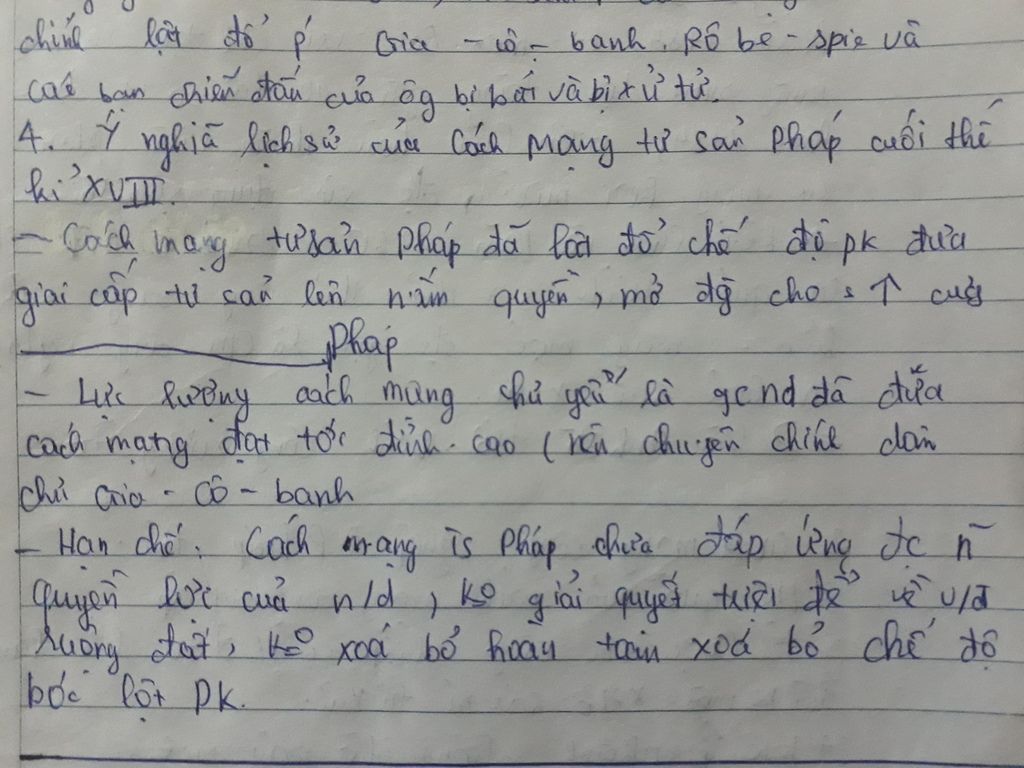 chính lật đổ p' Gia - cô - banh. Rô be - spie và
các bạn chiến đấu của ôg bị bắt và bị xử tử.
4. Ý nghĩa lịch sử của Cách mạng tư sản Pháp cuối thế
kỉ XVIII.
- Cách mạng tư sản Pháp đã lật đổ chế độ pk đưa
giai cấp tư sản lên nắm quyền, mở đg cho s ↑ của
Pháp
- Lực lượng cách mạng chủ yếu là gcnd đã đưa
cách mạng đạt tới đỉnh cao (nền chuyên chính dân
chủ Gia - cô - banh
- Hạn chế: Cách mạng ts Pháp chưa đáp ứng đc n~
quyền lực của n/d, ko giải quyết triệt để về v/đ
ruộng đất, ko xoá bỏ hoàn toàn xoá bỏ chế độ
bóc lột PK.